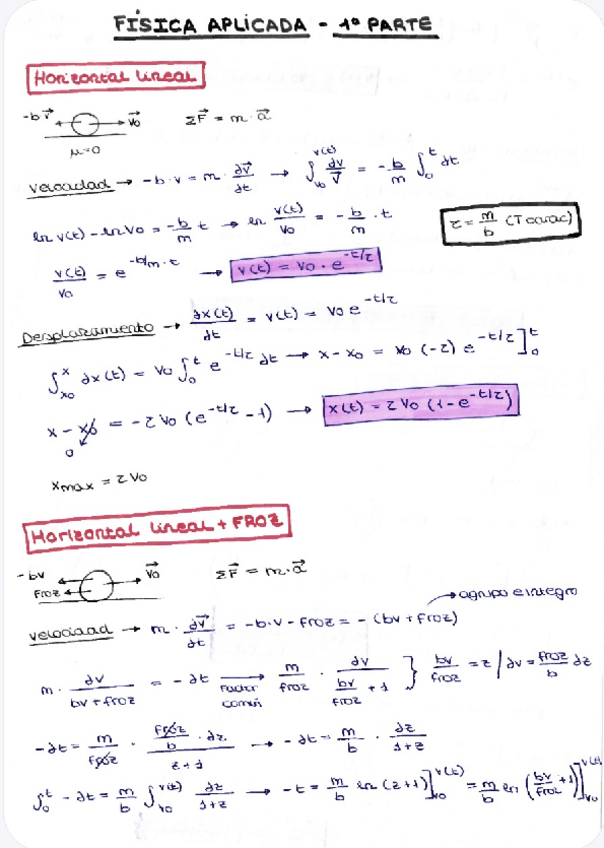 FÍSICA APLICADA - 1ª PARTE
Horizontal lineal
-b v⃗ v⃗o ΣF⃗ = m · a⃗
μ=0
velocidad → -b·v = m · ∂v⃗/∂t → ∫_vo^v(t) ∂v/v⃗ = -b/m ∫_0^t ∂t
ln v(t) - ln vo = -b/m t → ln v(t)/vo = -b/m · t
τ = m/b (T carac)
v(t)/vo = e^(-b/m · t) → v(t) = vo · e^(-t/τ)
Desplazamiento → ∂x(t)/∂t = v(t) = vo e^(-t/τ)
∫_xo^x ∂x(t) = vo ∫_0^t e^(-t/τ) ∂t → x - xo = vo (-τ) e^(-t/τ)]_0^t
x - xo = -τ vo (e^(-t/τ) - 1) → x(t) = τ vo (1 - e^(-t/τ))
0
xmax = τ vo
Horizontal lineal + FROZ
-bv v⃗o ΣF⃗ = m·a⃗
Froz
→ agrupo e integro
velocidad → m · ∂v⃗/∂t = -b·v - froz = - (bv + froz)
m · ∂v/(bv + froz) = -∂t → Factor común m/froz · ∂v/(bv/froz + 1) } bv/froz = z / ∂v = froz/b ∂z
-∂t = m/froz · (froz/b · ∂z)/(z+1) → -∂t = m/b · ∂z/(1+z)
∫_0^t -∂t = m/b ∫_vo^v(t) ∂z/(1+z) → -t = m/b ln (z+1)]_vo^v(t) = m/b ln (bv/froz + 1)]_vo^v(t)